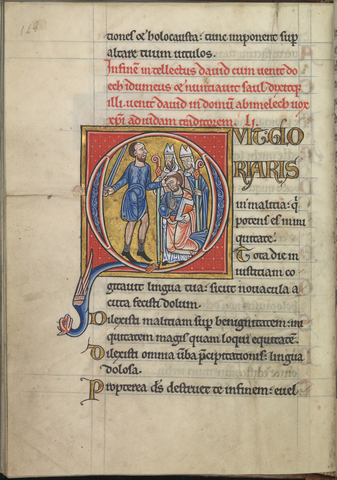 tiones & holocausta: tunc imponent sup
altare tuum uitulos.
Infinem intellectus dauid cum uenit do
ech idumeus & nuntiauit saul dixitq;
illi. uenit dauid in domum abimelech uox
xpi ad iudam traditorem. LI.
QUIT GLO
RIARIS
in malicia: q
potens es iniqui
quitate.
Tota die in
iusticiam co
gitauit lingua tua: sicut nouacula a
cuta fecisti dolum.
Dilexisti maliciam sup benignitatem: ini
quitatem magis quam loqui equitatem.
Dilexisti omnia uba pcipitationis: lingua
dolosa.
Propterea ds destruet te infinem: euel